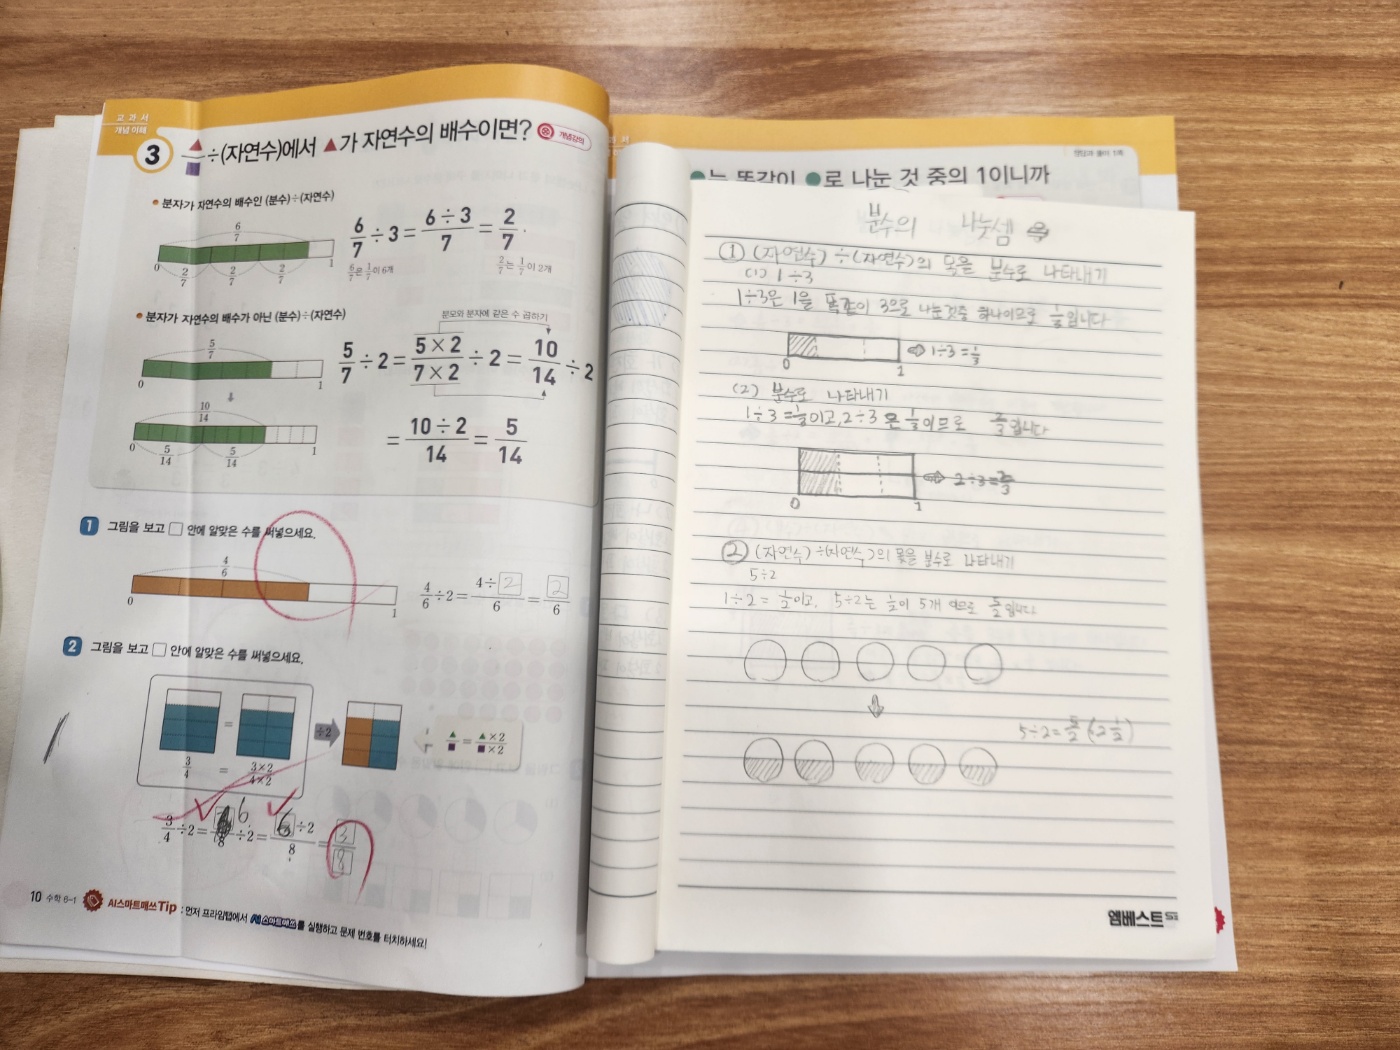 교 과 서
개념 이해
3
▲/■÷(자연수)에서 ▲가 자연수의 배수이면?
개념강의
• 분자가 자연수의 배수인 (분수)÷(자연수)
6/7
0 1
2/7 2/7 2/7
6/7 ÷ 3 = 6÷3/7 = 2/7.
6/7은 1/7이 6개
2/7는 1/7이 2개
• 분자가 자연수의 배수가 아닌 (분수)÷(자연수)
분모와 분자에 같은 수 곱하기
5/7
0 1
5/7 ÷ 2 = 5×2/7×2 ÷ 2 = 10/14 ÷ 2
10/14
0 1
5/14 5/14
= 10÷2/14 = 5/14
1 그림을 보고 □ 안에 알맞은 수를 써넣으세요.
4/6
0 1
4/6÷2= 4÷2/6 = 2/6
2 그림을 보고 □ 안에 알맞은 수를 써넣으세요.
=
÷2
3/4 = 3×2/4×2
▲/■ = ▲×2/■×2
6
3/4÷2= /8÷2= 6÷2/8 = 3/8
10 수학 6-1
AI스마트매쓰 Tip : 먼저 프라임탭에서 AI스마트매쓰를 실행하고 문제 번호를 터치하세요!
●는 똑같이 ●로 나눈 것 중의 1이니까
분수의 나눗셈
① (자연수) ÷(자연수)의 몫은 분수로 나타내기
(1) 1÷3
1÷3은 1을 똑같이 3으로 나눈것중 하나이므로 1/3입니다
0 1
⇨ 1÷3=1/3
(2) 분수로 나타내기
1÷3=1/3이고, 2÷3은 1/3이므로 2/3입니다
0 1
⇨ 2÷3=2/3
② (자연수)÷(자연수)의 몫은 분수로 나타내기
5÷2
1÷2 = 1/2이고, 5÷2는 1/2이 5개 이므로 5/2입니다
5÷2=5/2(2 1/2)
엠베스트SE